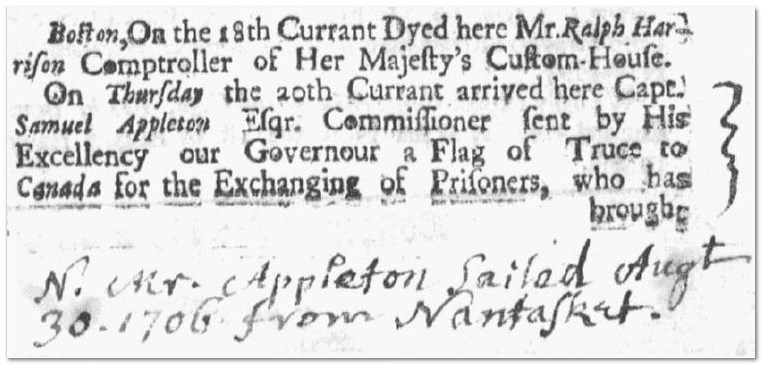 Boſton, On the 18th Currant Dyed here Mr. Ralph Har-
riſon Comptroller of Her Majeſty's Cuſtom-Houſe.
On Thurſday the 20th Currant arrived here Capt.
Samuel Appleton Eſqr. Commiſſioner ſent by His
Excellency our Governour a Flag of Truce to
Canada for the Exchanging of Priſoners, who has
brought
N. Mr. Appleton Sailed Augt
30. 1706 from Nantaſket.